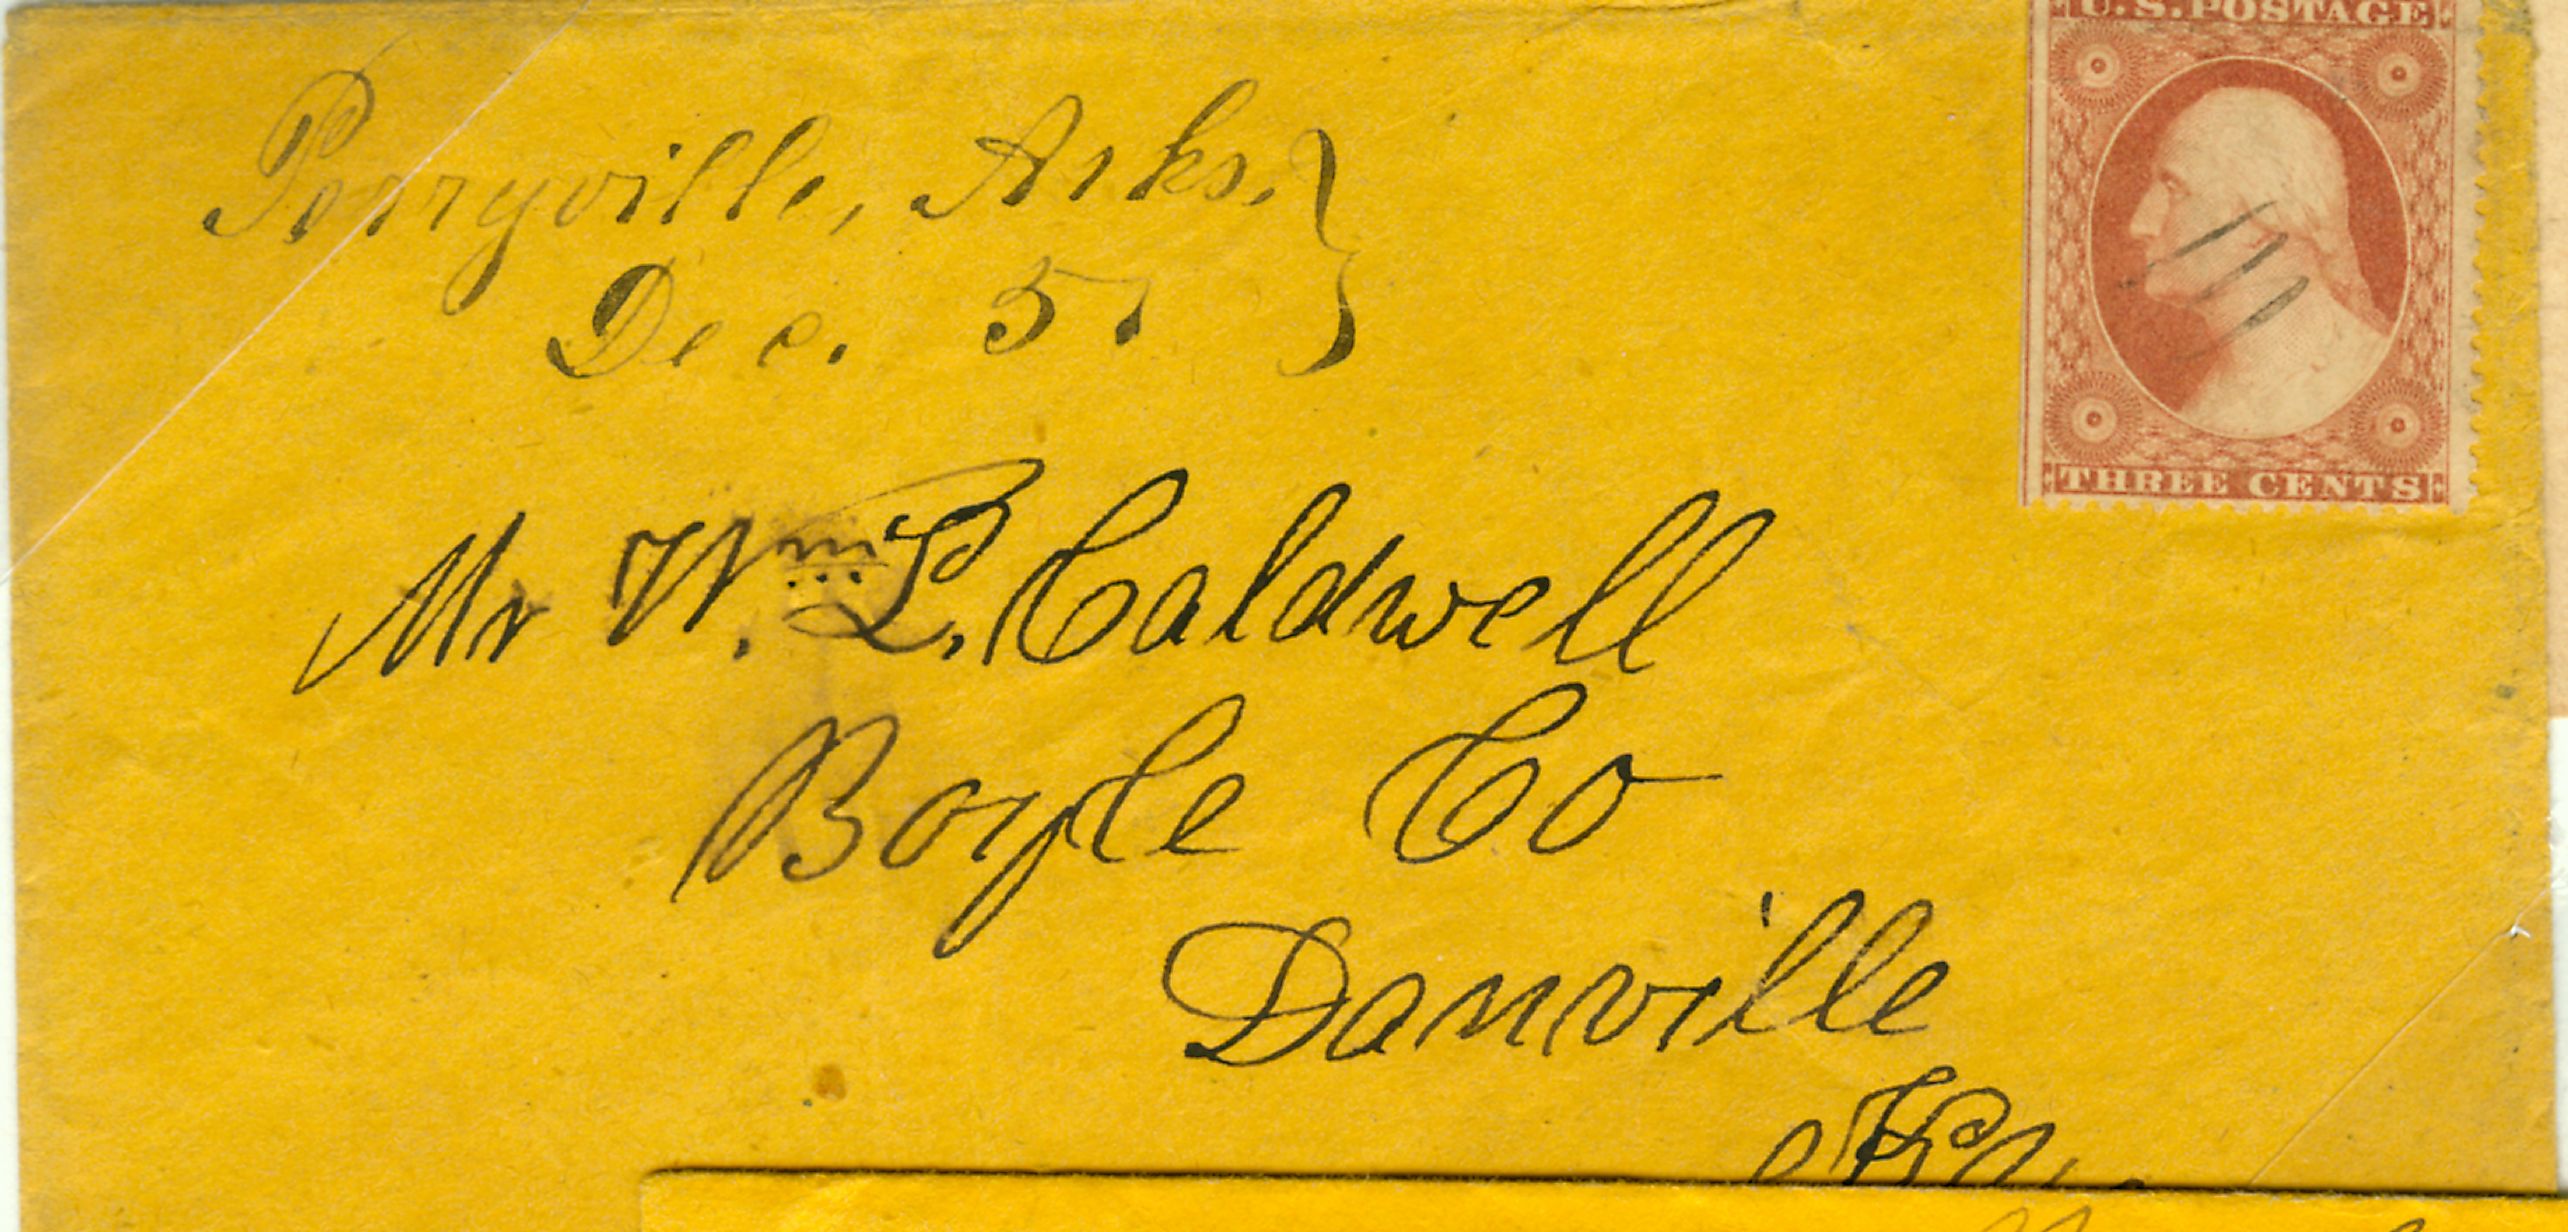 U.S. POSTAGE
Perryville, Arks.
Dec. 5.
THREE CENTS
Mr Wm. L. Caldwell
Boyle Co
Danville
Ky.